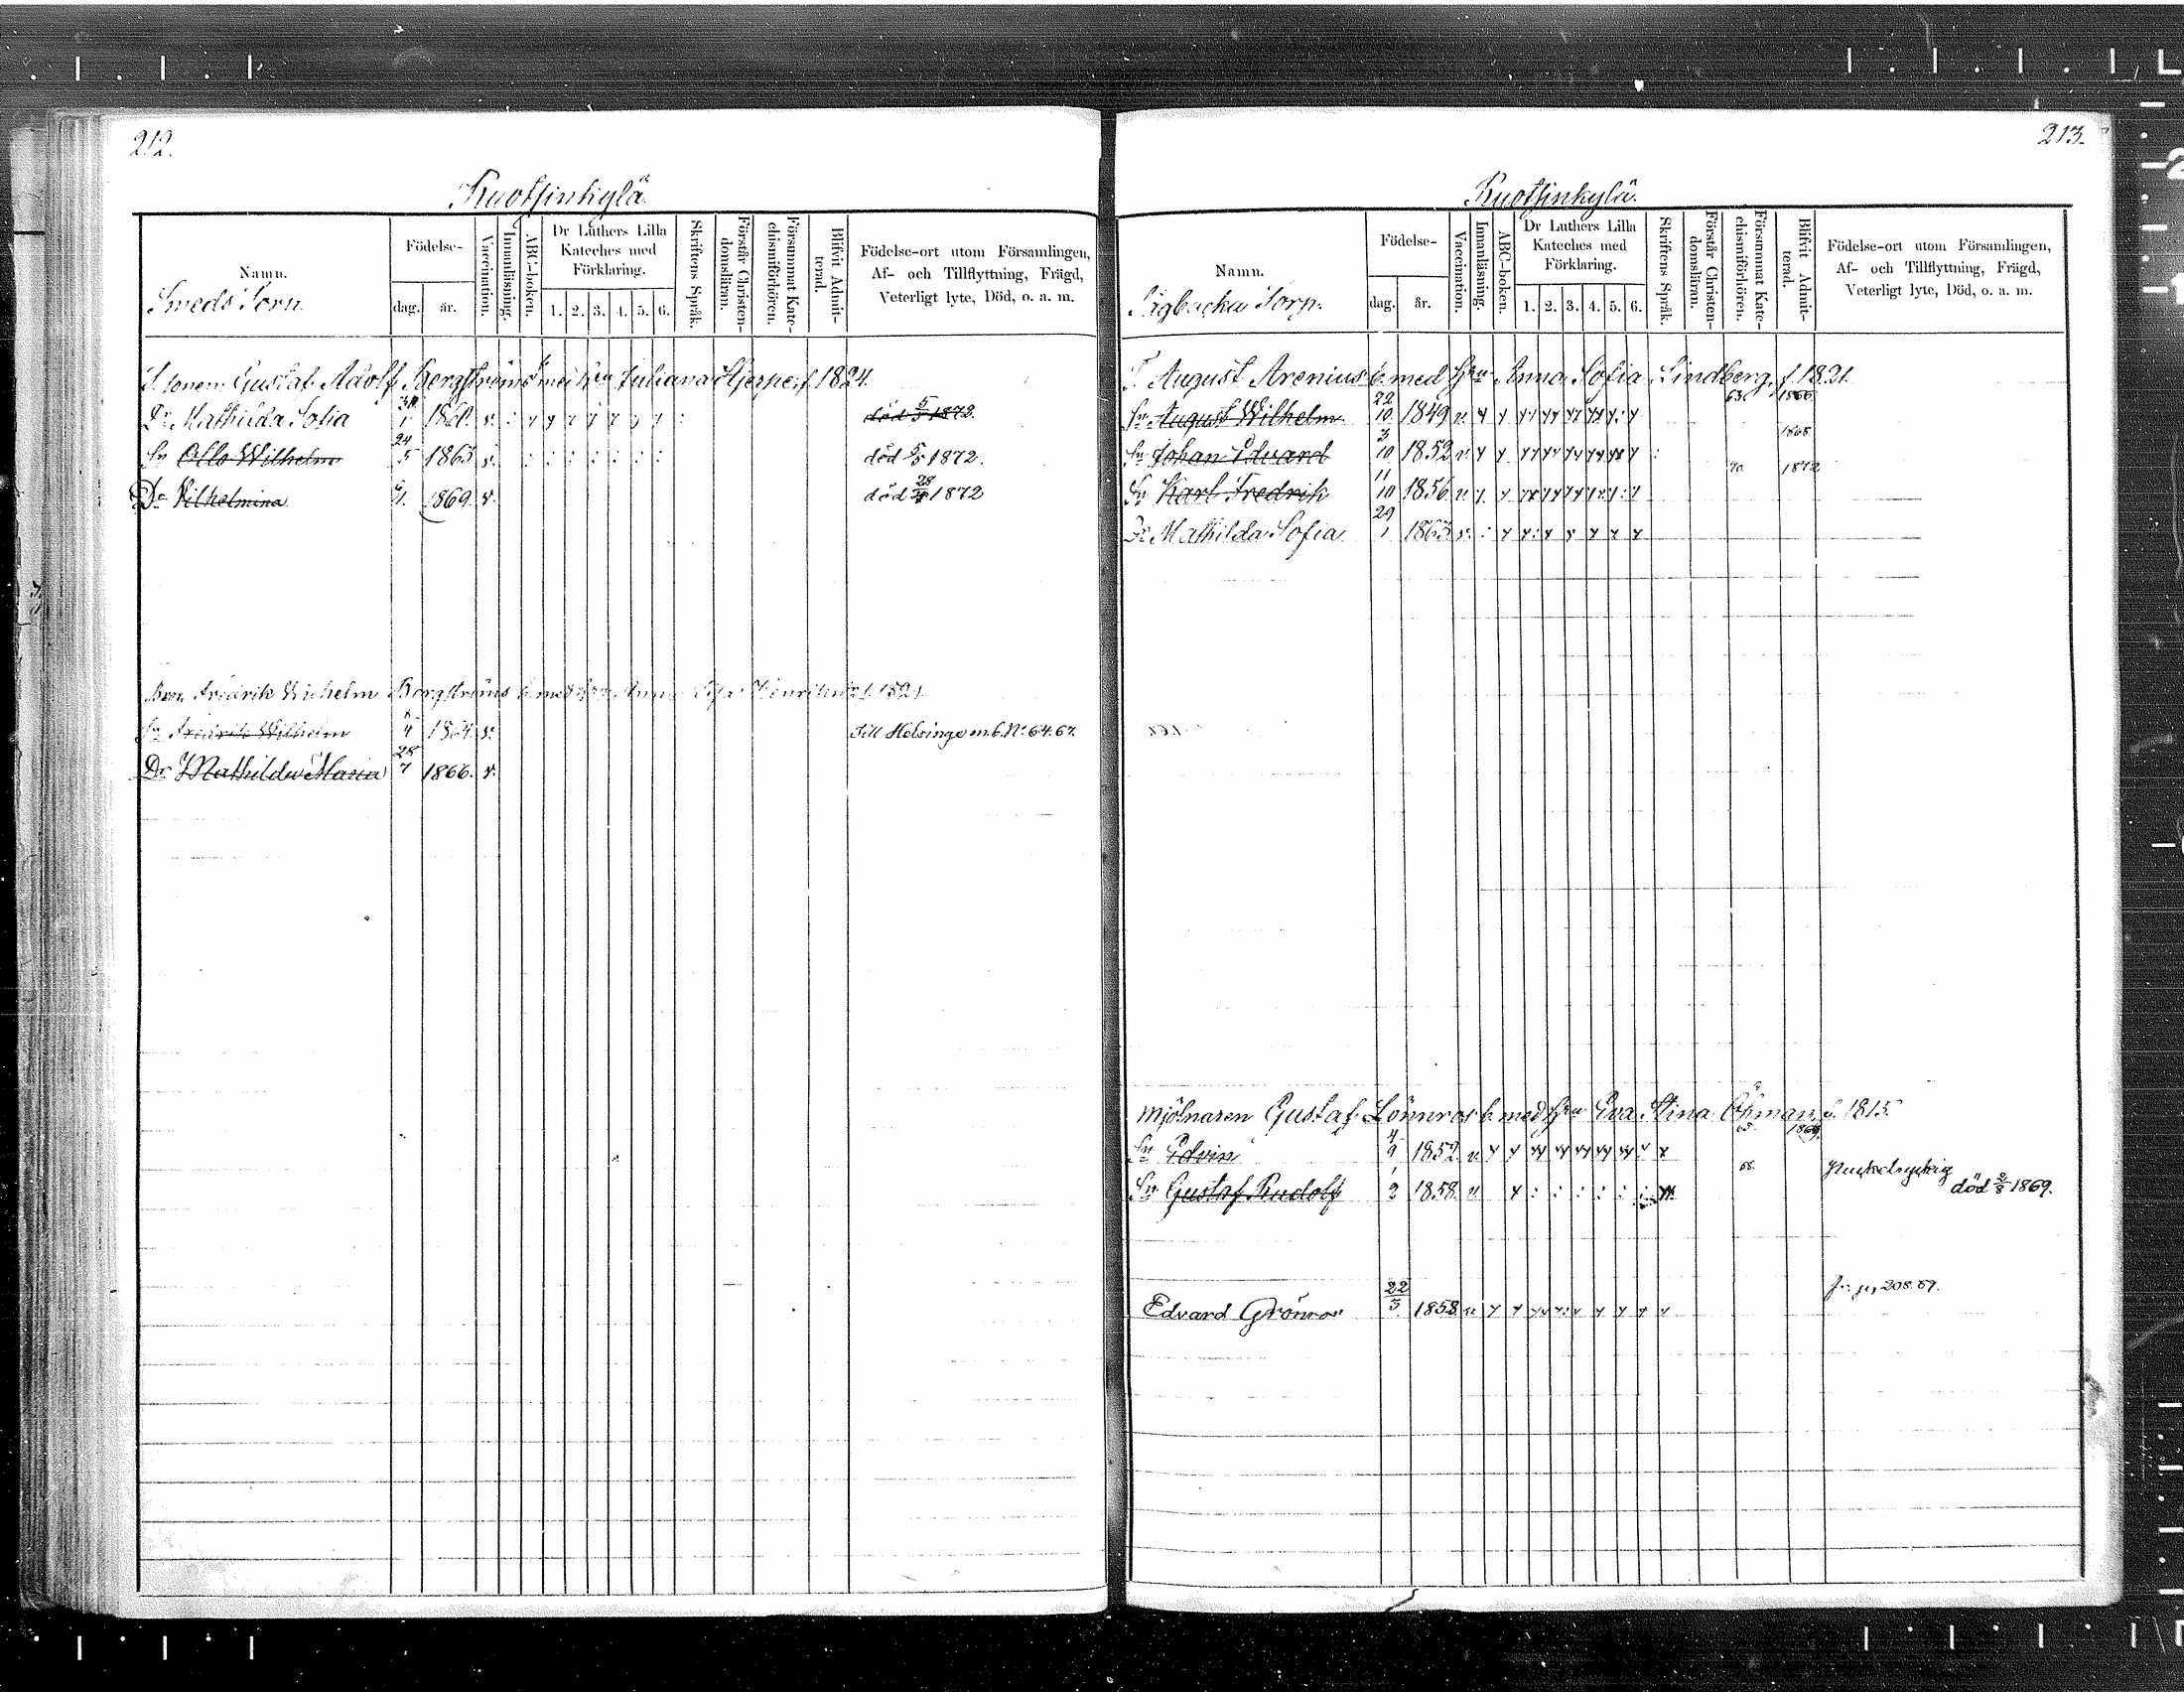 212.
Kuotsinkylä
Namn.
Smeds Torp.
Födelse-
dag. år.
Vaccination.
Innanläsning.
ABC-boken.
Dr Luthers Lilla
Kateches med
Förklaring.
1. 2. 3. 4. 5. 6.
Skriftens Språk.
Förstår Christen-
domsläran.
Försummat Kate-
chismiförhören.
Blifvit Admit-
terad.
Födelse-ort utom Församlingen,
Af- och Tillflyttning, Frägd,
Veterligt lyte, Död, o. a. m.
Gustaf Adolf Bergströms Juliana f. 1824.
Dr Mathilda Sofia 1 v. död 5 1872.
Sn Otto Wilhelm 24 5 1863 v. död 1872.
Dr Vilhelmina 1. 1869. v. död 28 1872
Fredrik Wilhelm Bergströms b. med Anna
Sn Fredrik Wilhelm v. Till Helsinge m.b. No 64.67.
Dr Mathilda Maria 28 7 1866. v.
213.
Kuotsinkylä.
Namn.
Torp.
Födelse-
dag. år.
Vaccination.
Innanläsning.
ABC-boken.
Dr Luthers Lilla
Kateches med
Förklaring.
1. 2. 3. 4. 5. 6.
Skriftens Språk.
Förstår Christen-
domsläran.
Försummat Kate-
chismiförhören.
Blifvit Admit-
terad.
Födelse-ort utom Församlingen,
Af- och Tillflyttning, Frägd,
Veterligt lyte, Död, o. a. m.
T. August Arenius b. med Hru Anna Sofia Lindberg, f. 1821.
Sn August Wilhelm 22 10 1849 v. 63. 1866
Sn Johan Edvard 3 10 1852 v. 1868
Sn Karl Fredrik 11 10 1856 v. 70 1872
Dr Mathilda Sofia 29 1 1863 v.
Mjölnaren Gustaf Lönnros b. med Hru Eva Stina Öhman f. 1815.
Sn Edvin 4 9 1852 v. 1869.
Sn Gustaf Rudolf 1 2 1858 v. 68. död 2/8 1869.
Edvard Grönros 22/5 1858 v. fr. p. 208.69.